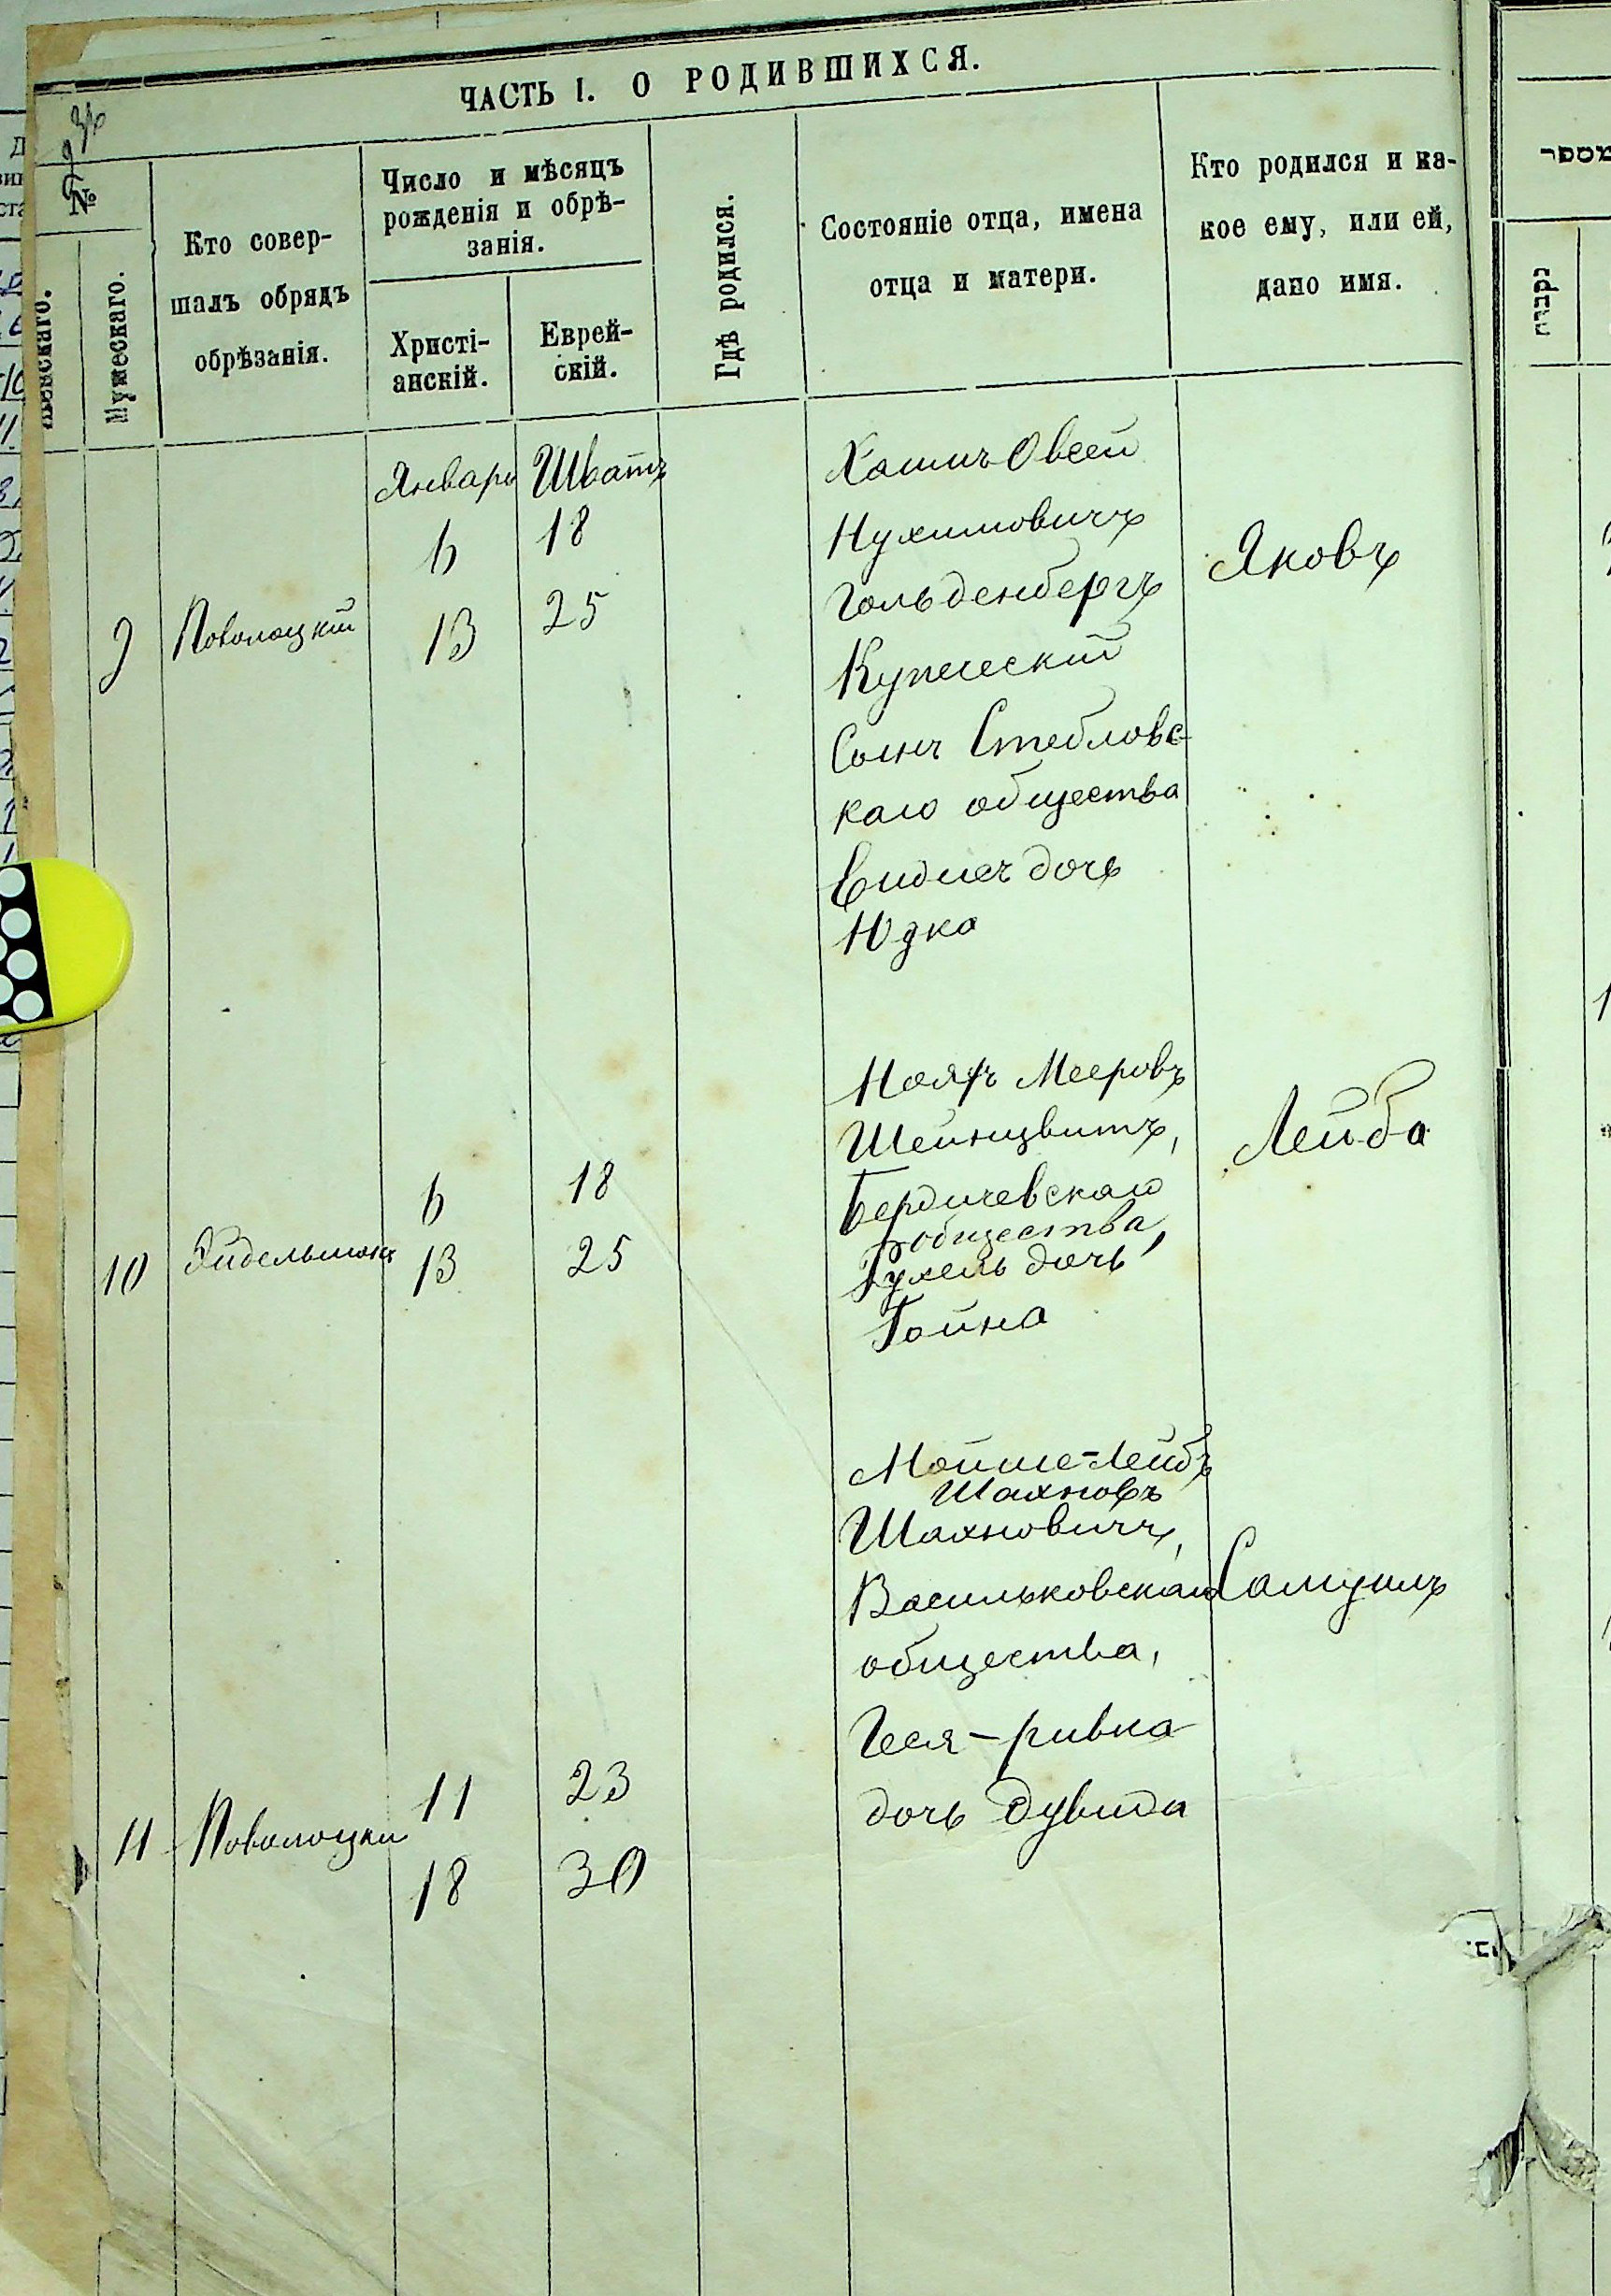 ЧАСТЬ I. О РОДИВШИХСЯ.
№
Мужескаго.
Кто совер-
шалъ обрядъ
обрѣзанія.
Число и мѣсяцъ
рожденія и обрѣ-
занія.
Христі-
анскій.
Еврей-
скій.
Гдѣ родился.
Состояніе отца, имена
отца и матери.
Кто родился и ка-
кое ему, или ей,
дано имя.
מספר
נקבות
Январь Шватъ
6 18
9 Поволоцкій 13 25
Хаимъ Овсей
Нухимовичъ
Гольденбергъ
Купеческій
Сынъ Стебловс-
каго общества
дочь
Юдко
Яковъ
6 18
10 Эйдельманъ 13 25
Мееровъ
Шейнцвитъ,
Бердичевскаго
общества,
Рухель дочь
Лейба
11 23
11 Поволоцкий
18 30
Мойше-Лейбъ
Шахновъ
Шахновичъ,
Васильковскаго
общества,
Геся-ривка
дочь Дувида
Самуилъ